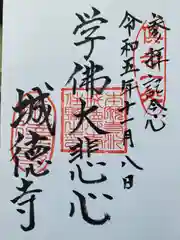 參拝記念
令和五年十一月八日
学佛大悲心
城徳寺